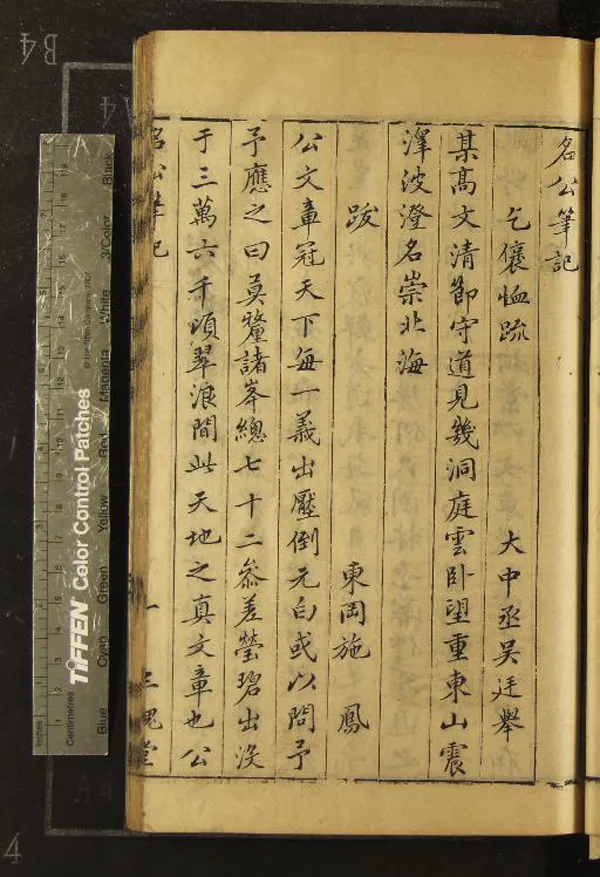 名公筆記
乞儴恤䟽 大中丞吴廷舉
某髙文清節守道見幾洞庭雲卧望重東山震
澤波澄名崇北海
跋 東岡施鳳
公文章冠天下每一義出壓倒元白或以問予
予應之曰莫釐諸峯緫七十二叅差瑩碧出没
于三萬六千頃翠浪間此天地之真文章也公
名公筆記 一 三槐堂
inches
Centimetres
TIFFEN Color Control Patches
Blue Cyan Green Yellow Red Magenta White 3/Color Black
B4
A4
A4
4